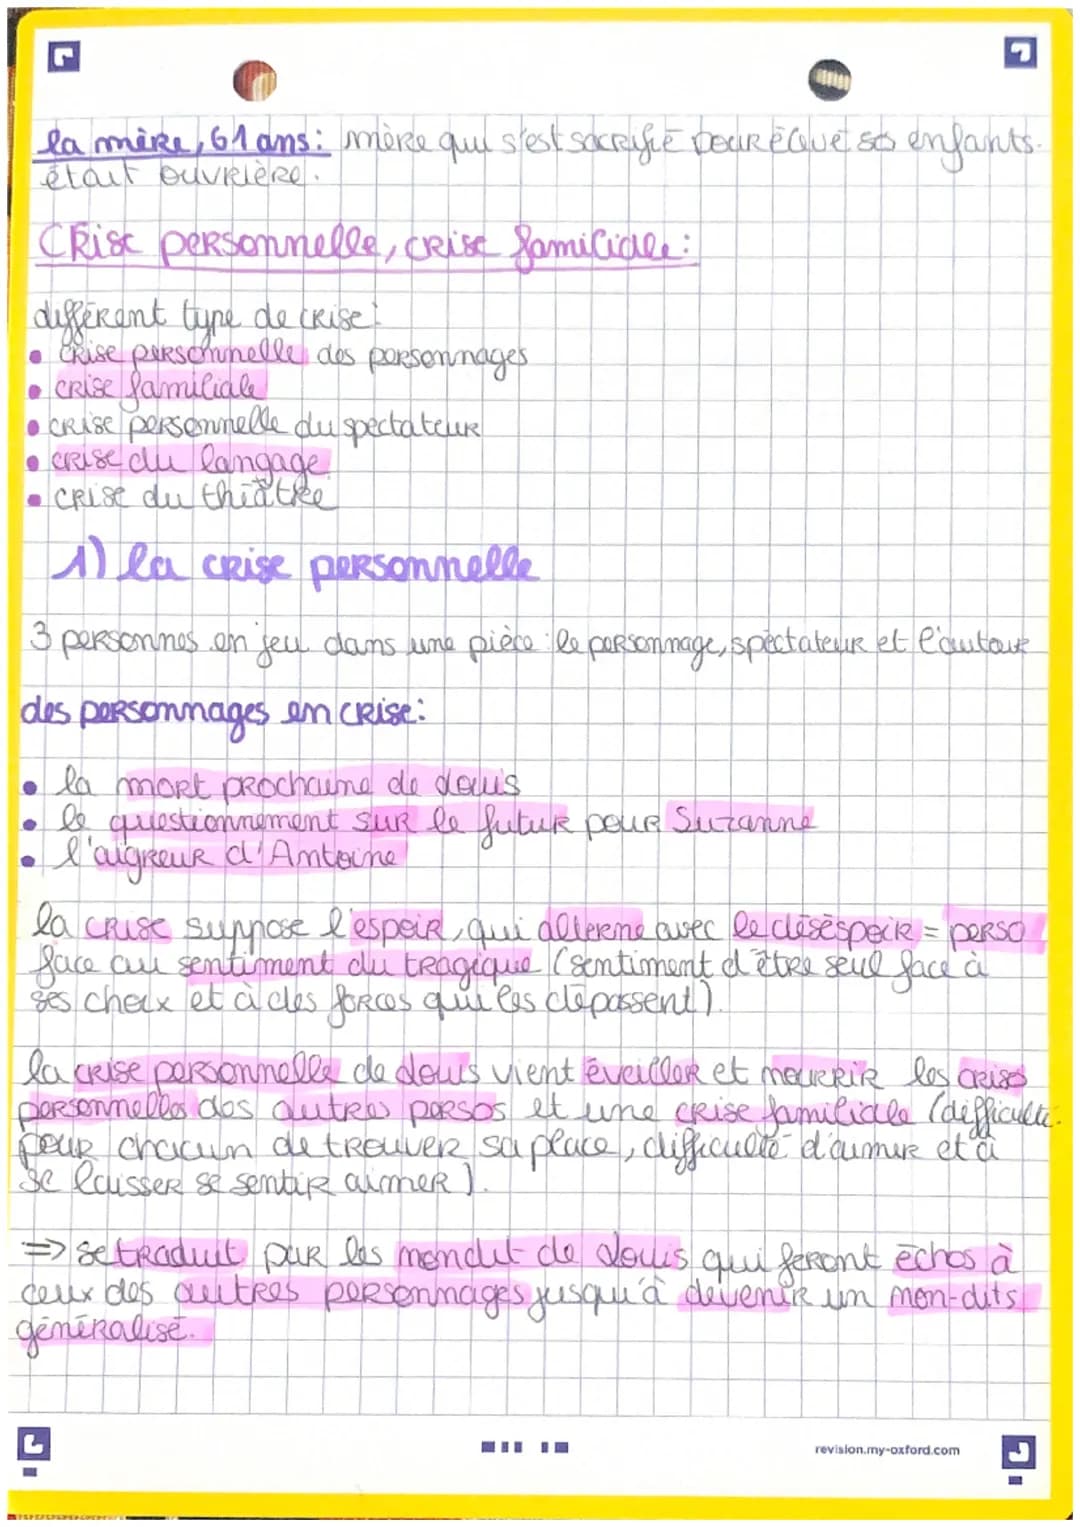 la mère, 61 ans: mère qui s'est sacrifié pour élevé ses enfants.
était ouvrière.
Crise personnelle, crise familiale:
différent type de crise:
• crise personnelle des personnages
• crise familiale
• crise personnelle du spectateur
• crise du langage
• crise du théâtre
1) la crise personnelle
3 personnes en jeu dans une pièce: le personnage, spectateur et l'auteur
des personnages en crise:
• la mort prochaine de Louis
• le questionnement sur le futur pour Suzanne
• l'aigreur d'Antoine
la crise suppose l'espoir, qui alterne avec le désespoir = perso
face au sentiment du tragique (sentiment d'être seul face à
ses choix et à des forces qui les dépassent).
la crise personnelle de Louis vient éveiller et nourrir les crises
personnelles des autres persos et une crise familiale (difficulté
pour chacun de trouver sa place, difficulté d'aimer et à
se laisser se sentir aimer).
=> se traduit par les nondit de Louis qui feront échos à
ceux des autres personnages jusqu'à devenir un non-dits
généralisé.
revision.my-oxford.com